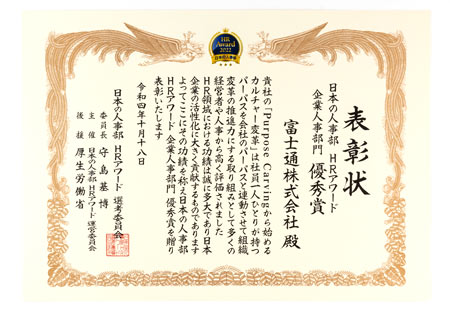 HR
Award
2022
日本の人事部
表彰状
日本の人事部 HRアワード
企業人事部門 優秀賞
富士通株式会社 殿
貴社の「Purpose Carvingから始める
カルチャー変革」は社員一人ひとりが持つ
パーパスを会社のパーパスと連動させて組織
変革の推進力にする取り組みとして多くの
経営者や人事から高く評価されました
HR領域における功績は誠に多大であり日本
企業の活性化に大きく貢献するものであります
よってここにその功績を称え日本の人事部
HRアワード 企業人事部門 優秀賞を贈り
表彰いたします
令和四年十月十八日
日本の人事部 HRアワード 選考委員会
委員長 守島基博
主催 日本の人事部 HRアワード 運営委員会
後援 厚生労働省